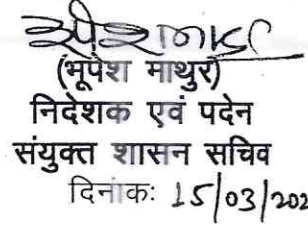 (भूपेश माथुर)
निदेशक एवं पदेन
संयुक्त शासन सचिव
दिनांकः 15/03/202